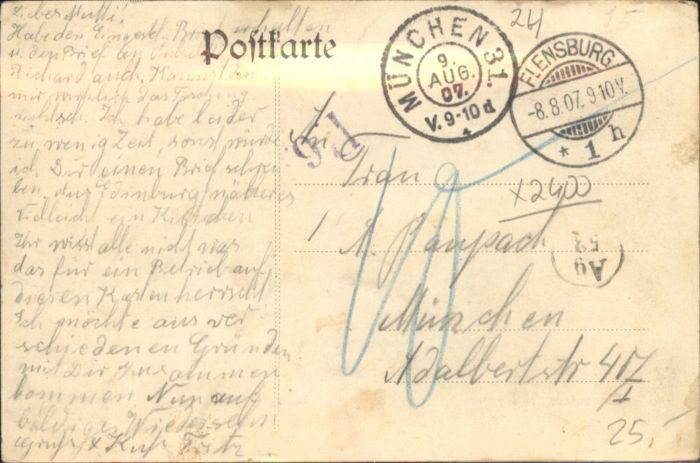 Liebe Mutti!
Habe den Eingeschr. Brief erhalten
u. den Brief an
Richard auch. Kannst Du
mir wirklich das
nicht sch. Ich habe leider
zu wenig Zeit, sonst würde
ich Dir einen Brief schrei
ben, das Edinburg
vielleicht ein Kistchen
Ihr wisst alle nicht was
das für ein Betrieb auf
diesen Kasten herrscht
Ich möchte aus ver
schiedenen Gründen
mit Dir zusammen
kommen Nun auf
baldiges Wiedersehn
Gruß & Kuß Fritz
Postkarte
MÜNCHEN 31.
9.
AUG.
07.
V. 9-10 d
FLENSBURG
-8.8.07. 9-10V.
* 1 h
24
15
An
Frau
A.
München
Adalbertstr 40
I
X2400
Ag
53
10
25.-